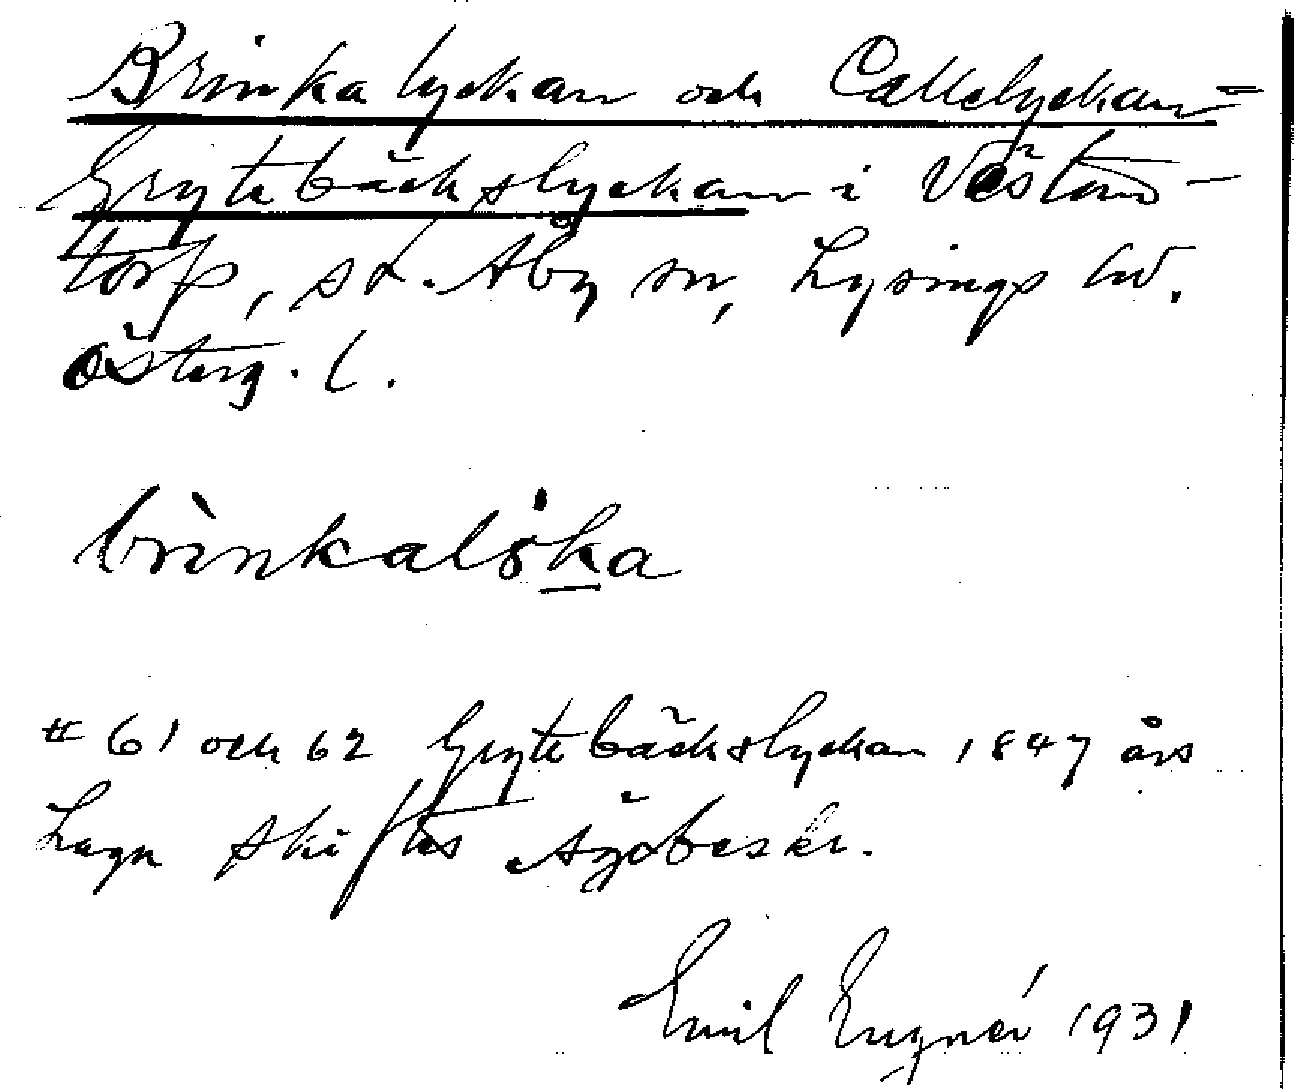 Brinkalyckan och Callelyckan =
Grytebäckslyckan i Västan-
torp, st. Åby sn, Lysings hd.
Österg. l.
brìnkalẏka
# 61 och 62 Grytebäckslyckan 1847 års
Laga skiftes Ägobeskr.
Emil 1931